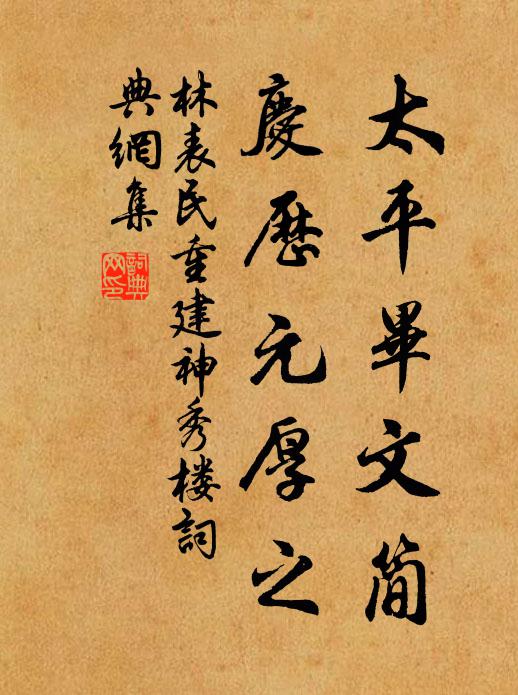 太平畢文簡
慶歷元厚之
林表民重建神秀楼詞
典網集
詞典
网印